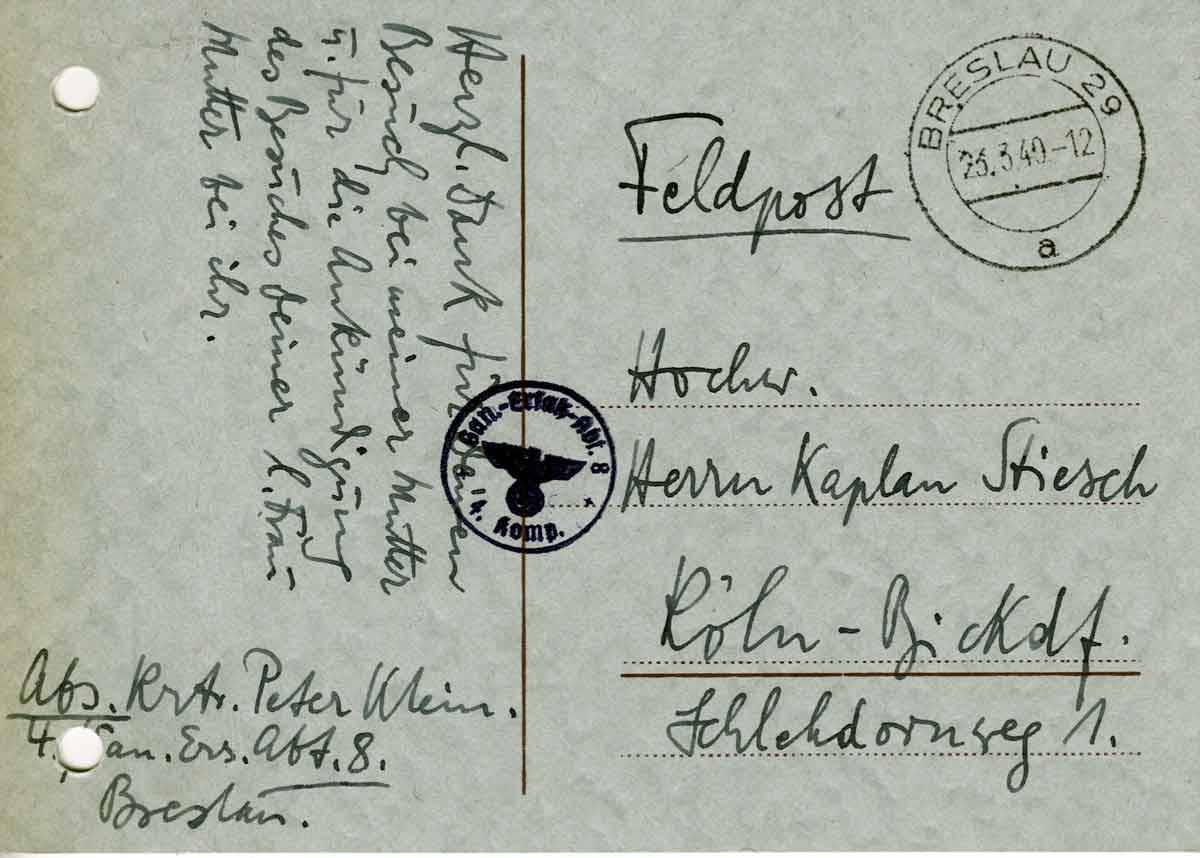 Herzl. Dank für Deinen
Besuch bei meiner Mutter
u. für die Ankündigung
des Besuches Deiner l. Frau
Mutter bei ihr.
BRESLAU 29
23.3.40.-12
a
Feldpost
San.-Ersatz-Abt. 8
4. Komp.
Hochw.
Herrn Kaplan Stiesch
Köln-Bickdf.
Schlehdornweg 1.
Abs. Krtr. Peter Klein.
4. San. Ers. Abt. 8.
Breslau.